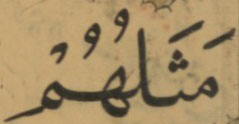 مَثَلُهُمْ